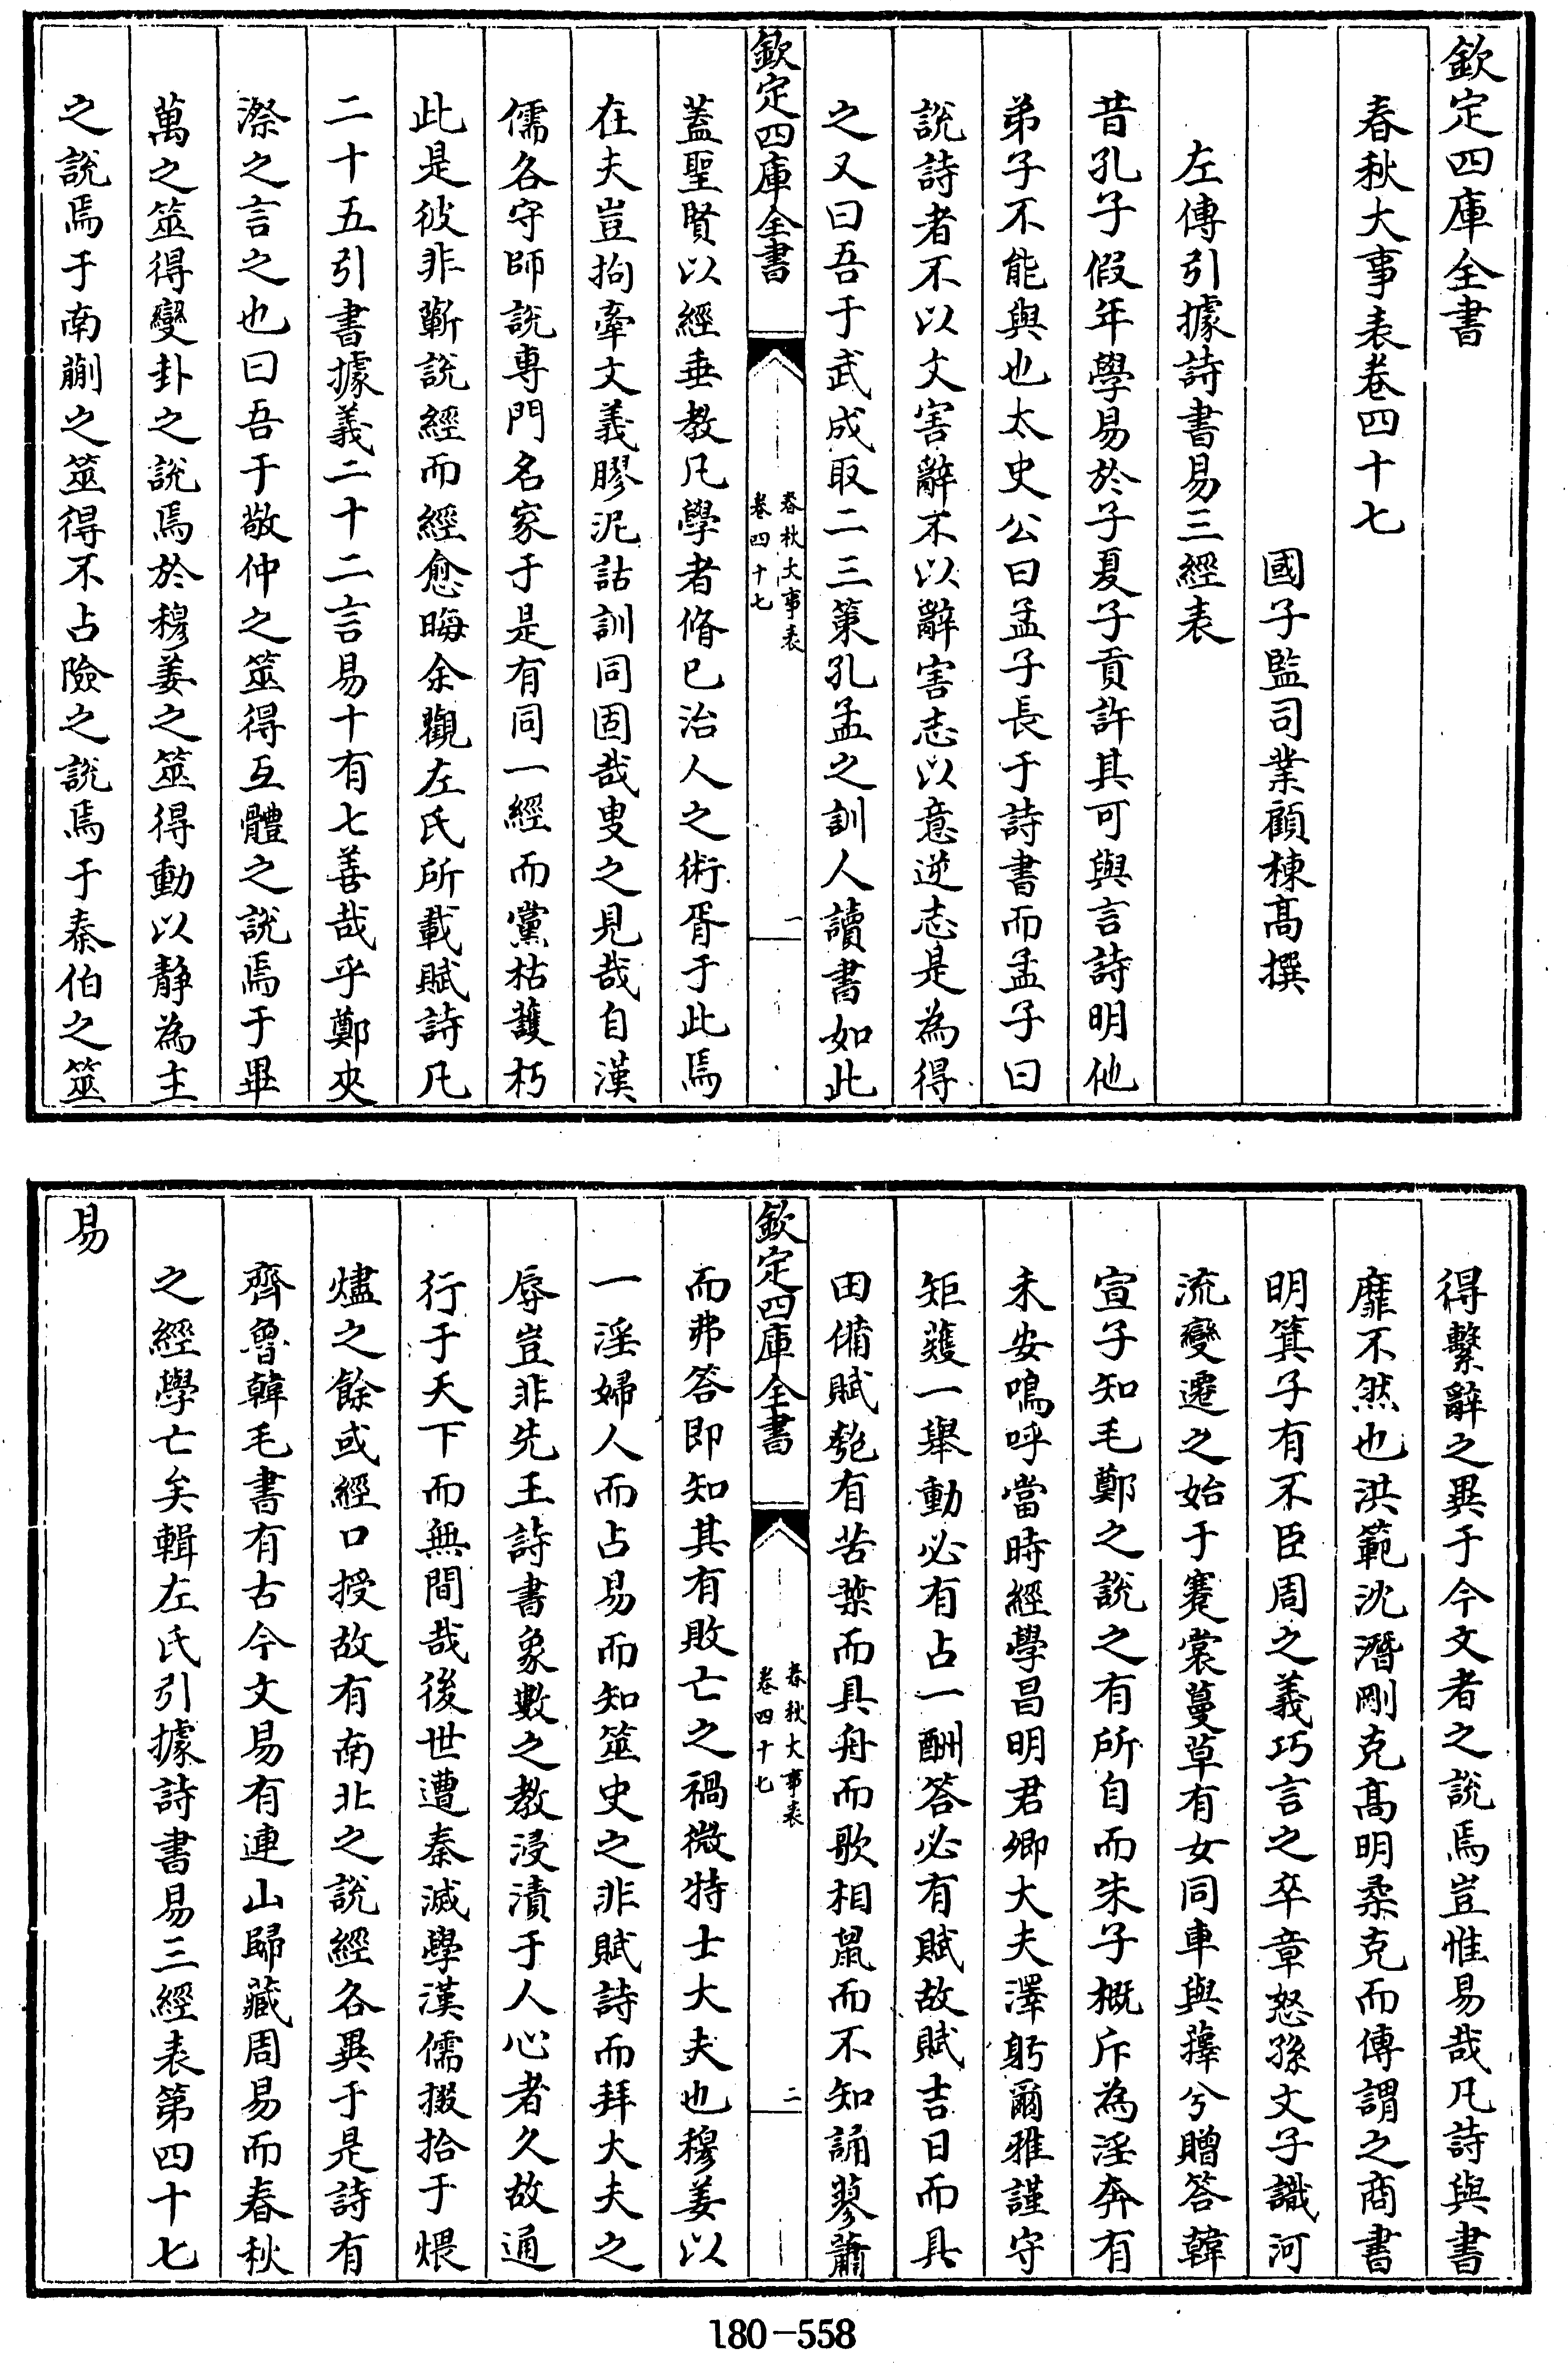 欽定四庫全書
春秋大事表卷四十七
國子監司業顧棟高撰
左傳引據詩書易三經表
昔孔子假年學易於子夏子貢許其可與言詩明他
弟子不能與也太史公曰孟子長于詩書而孟子曰
說詩者不以文害辭不以辭害志以意逆志是為得
之又曰吾于武成取二三策孔孟之訓人讀書如此
欽定四庫全書
春秋大事表
卷四十七
一
蓋聖賢以經垂教凡學者脩已治人之術胥于此焉
在夫豈拘牽文義膠泥詁訓同固哉叟之見哉自漢
儒各守師說專門名家于是有同一經而黨枯護朽
此是彼非斵說經而經愈晦余觀左氏所載賦詩凡
二十五引書據義二十二言易十有七善哉乎鄭夾
漈之言之也曰吾于敬仲之筮得互體之說焉于畢
萬之筮得變卦之說焉於穆姜之筮得動以靜為主
之說焉于南蒯之筮得不占險之說焉于秦伯之筮
得繫辭之異于今文者之說焉豈惟易哉凡詩與書
靡不然也洪範沈潛剛克髙明柔克而傳謂之商書
明箕子有不臣周之義巧言之卒章怒孫文子識河
流變遷之始于褰裳蔓草有女同車與蘀兮贈答韓
宣子知毛鄭之說之有所自而朱子概斥為淫奔有
未安嗚呼當時經學昌明君卿大夫澤躬爾雅謹守
矩矱一舉動必有占一酬答必有賦故賦吉日而具
田備賦匏有苦葉而具舟而歌相鼠而不知誦蓼蕭
欽定四庫全書
春秋大事表
卷四十七
二
而弗答即知其有敗亡之禍微特士大夫也穆姜以
一淫婦人而占易而知筮史之非賦詩而拜大夫之
辱豈非先王詩書象數之教浸漬于人心者久故通
行于天下而無間哉後世遭秦滅學漢儒掇拾于煨
燼之餘或經口授故有南北之說經各異于是詩有
齊魯韓毛書有古今文易有連山歸藏周易而春秋
之經學亡矣輯左氏引據詩書易三經表第四十七
易
180-558